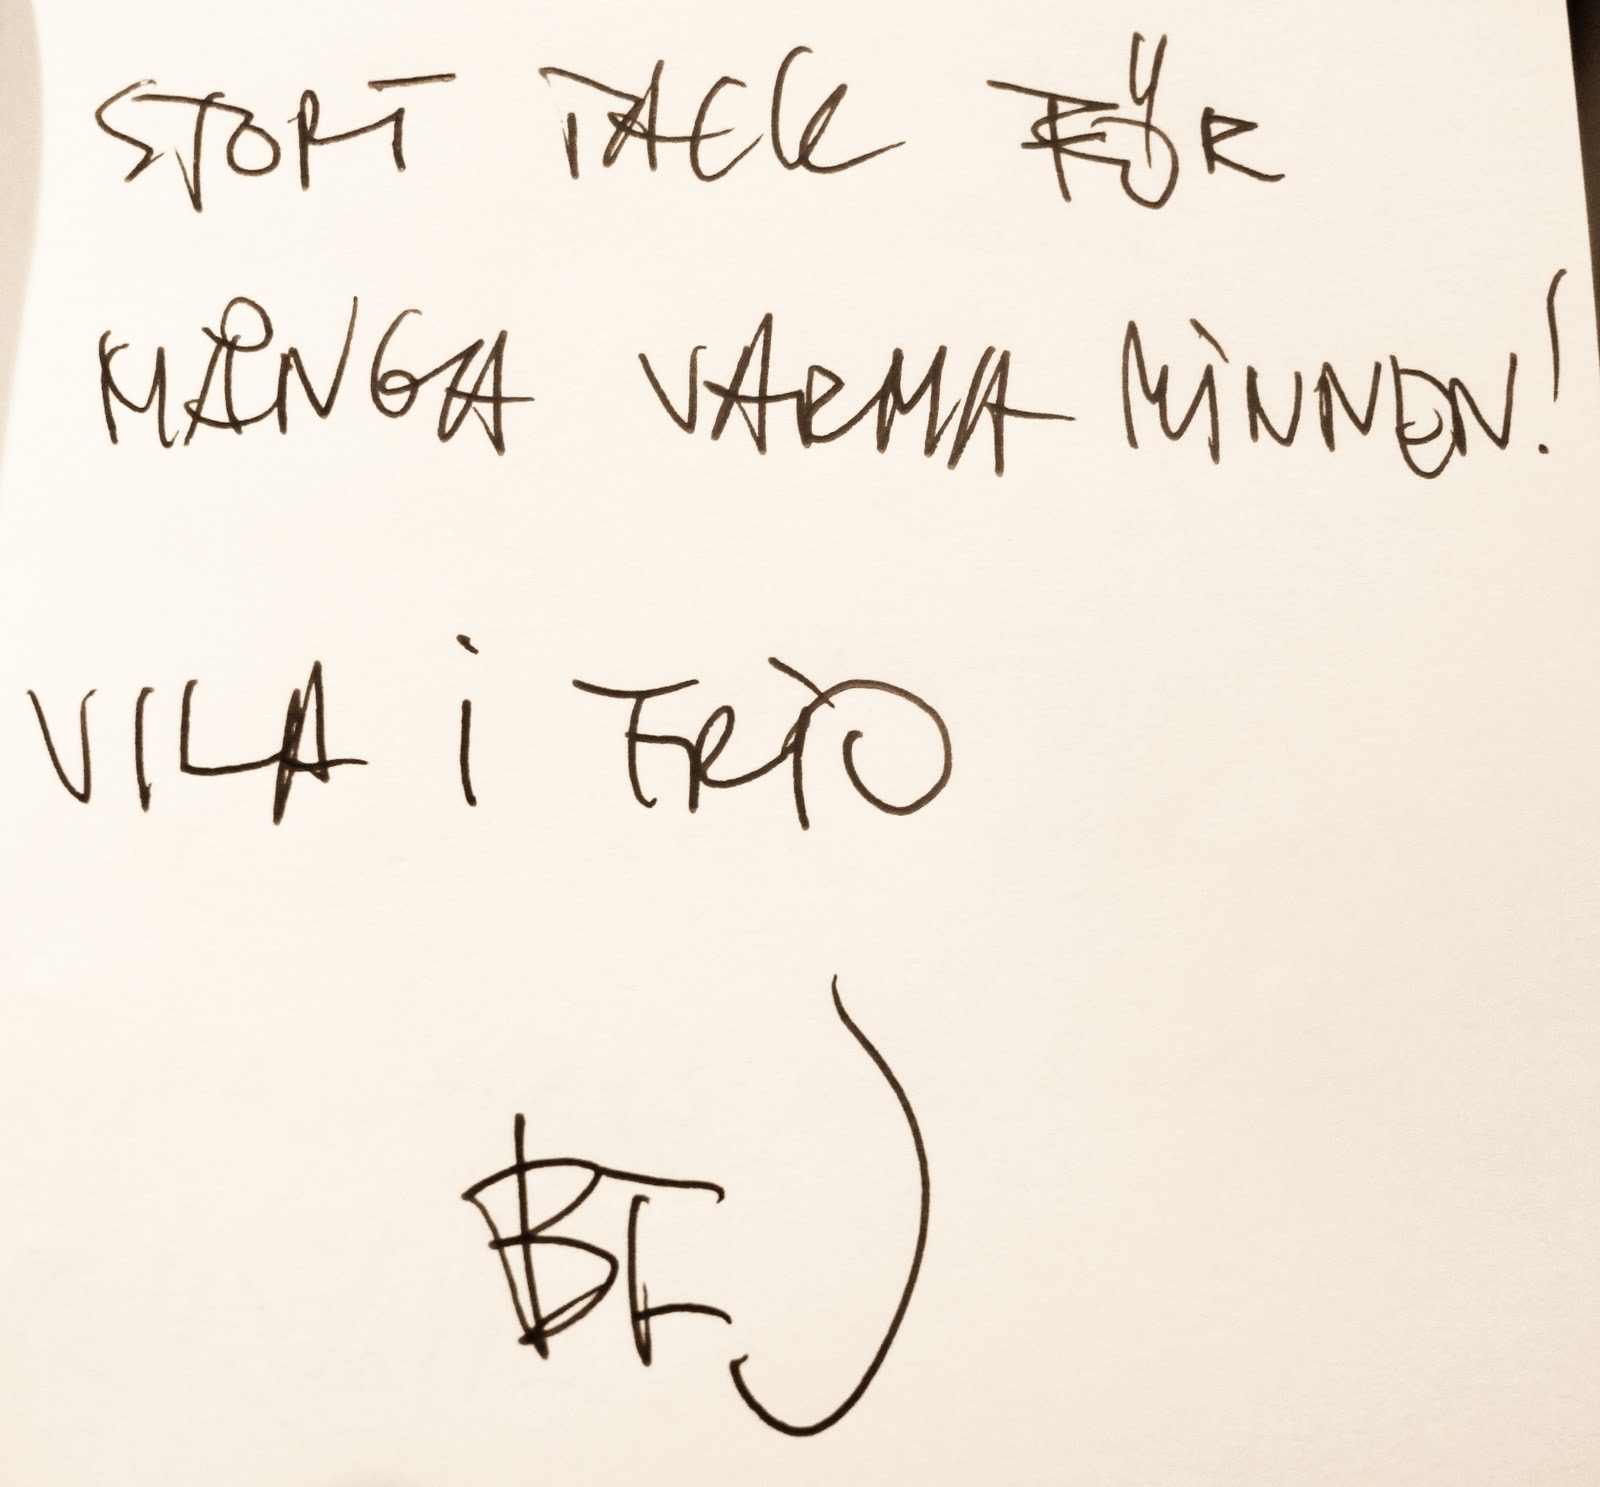 STORT TACK FÖR
MÅNGA VARMA MINNEN!
VILA I FRID
BEJ